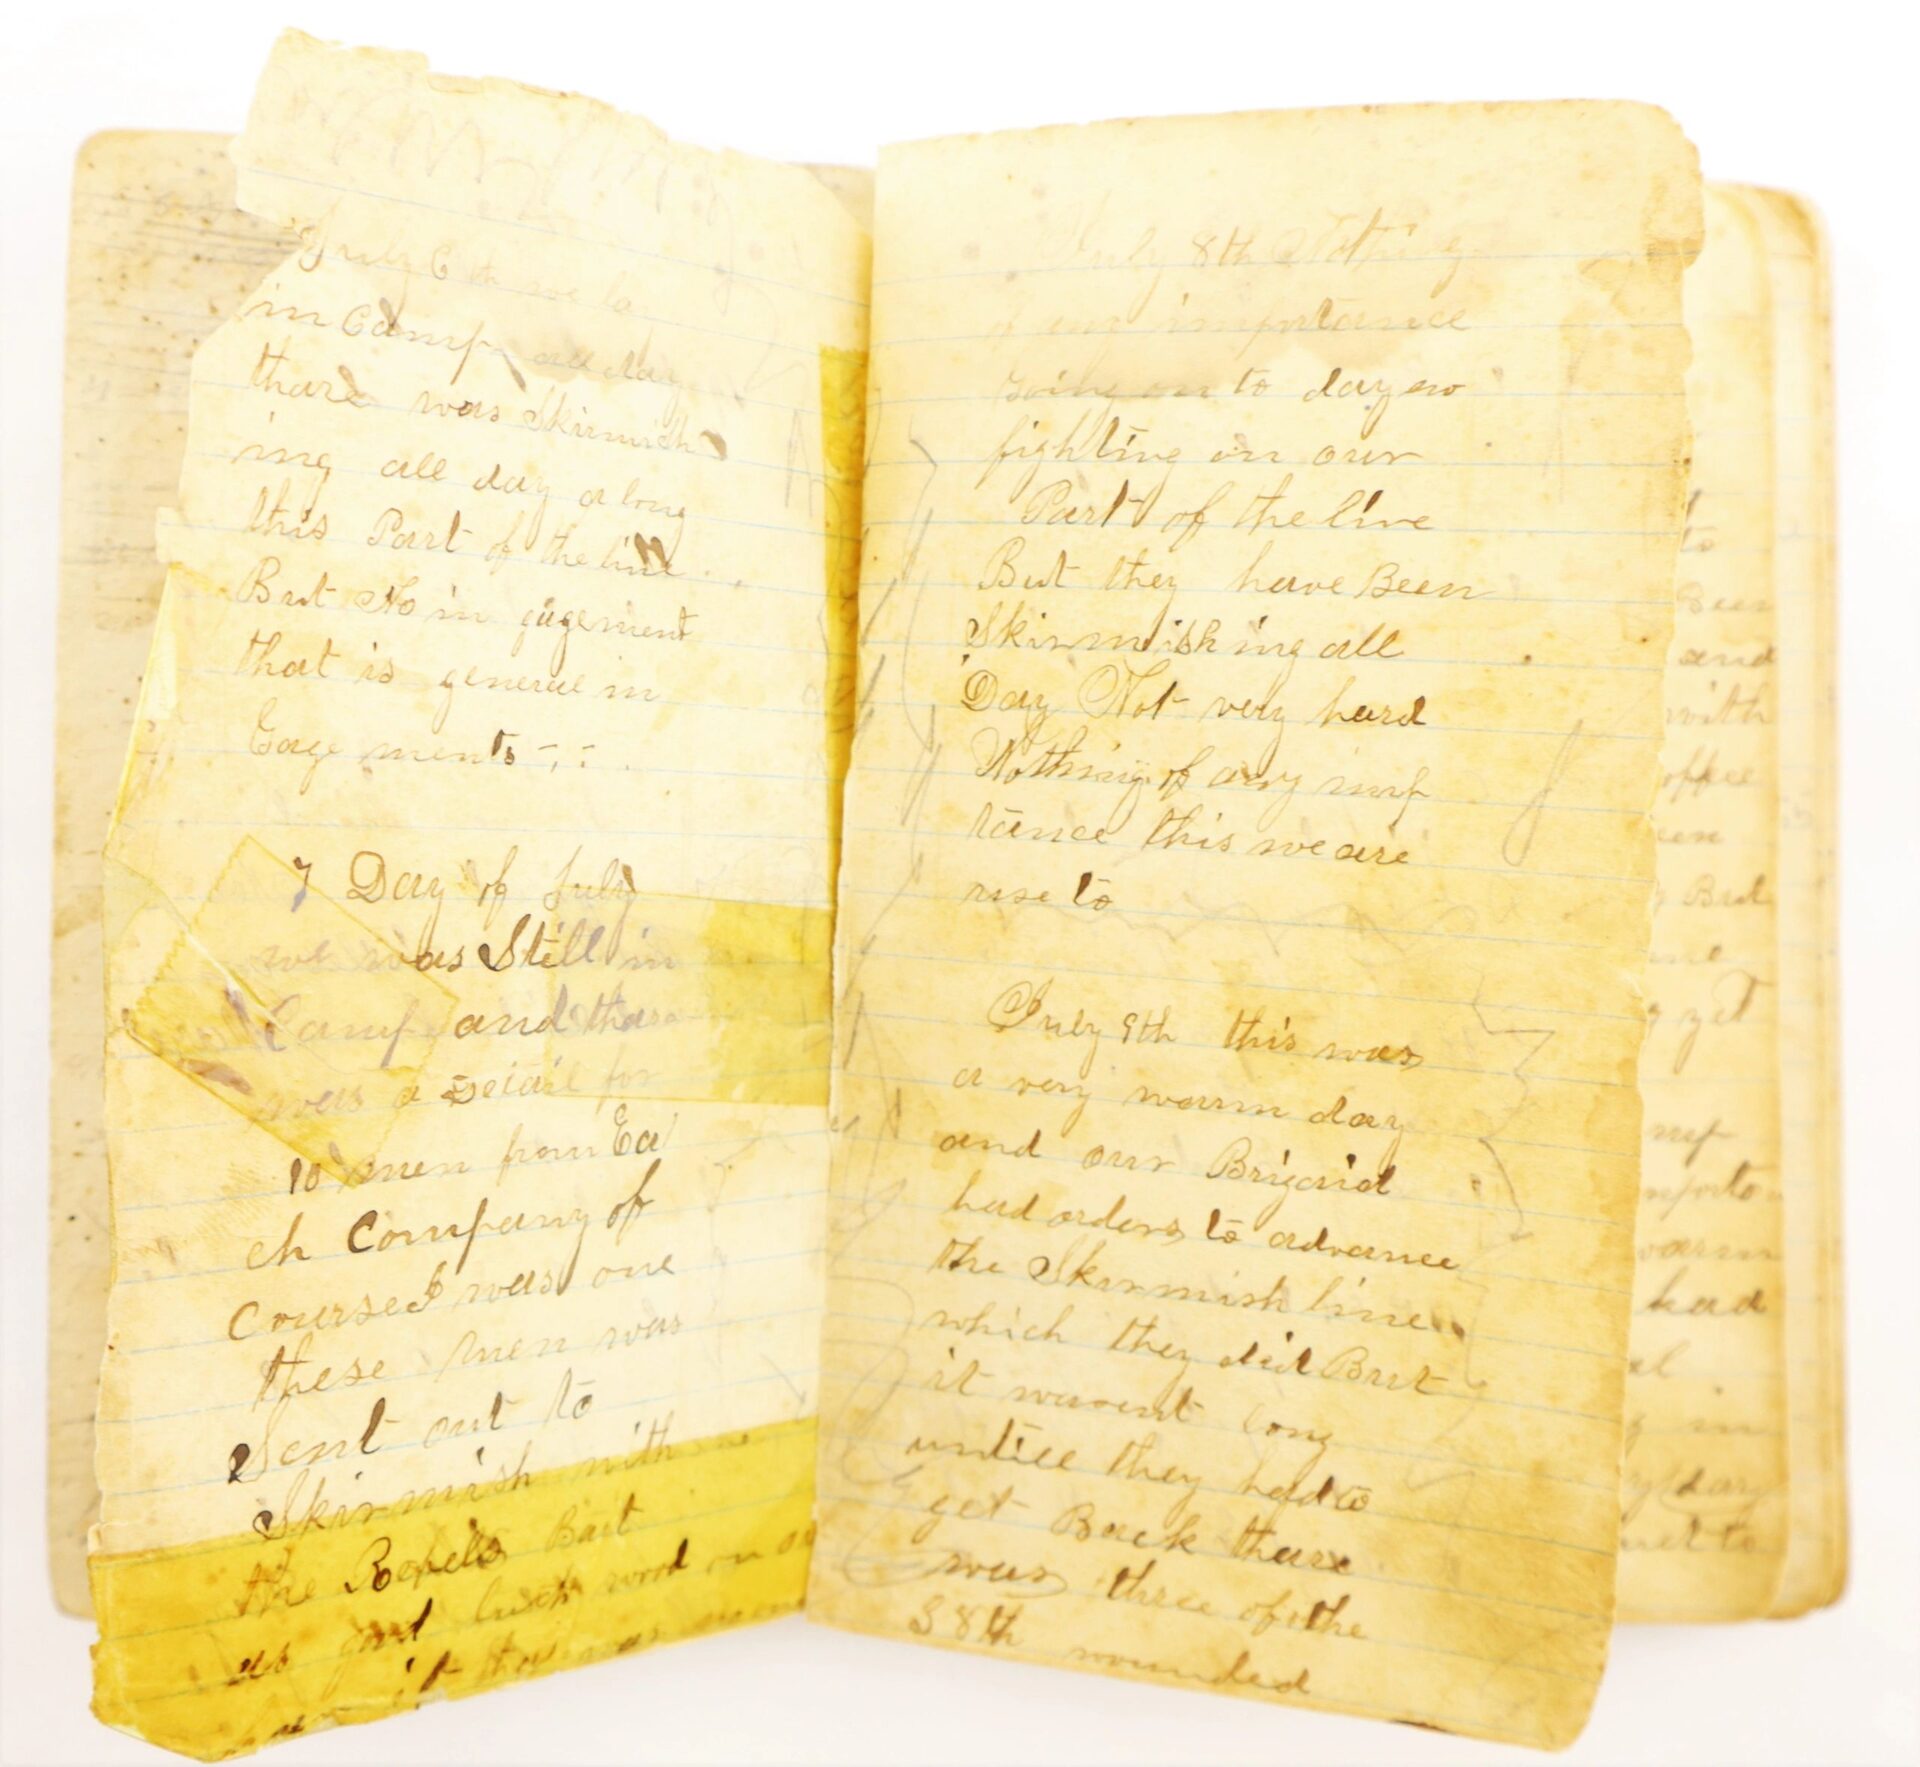 July 6th we la
in Camp all day
thare was Skirmish
ing all day along
this Part of the line
But No in gagement
that is generae in
Gage ments
7 Day of July
we was Still in
Camp and thare
was a Detail for
10 men from Ea
ch Company of
Course I was one
these men was
Sent out to
Skirmish with
the Rebels But
as good luck word
it thare was
July 8th Nothing
of eny importance
Going on to day no
fighting on our
Part of the line
But they have Been
Skirmishing all
Day Not very hard
Nothing of any imp
tance this we are
use to
July 9th this was
a very warm day
and our Brigaid
had orders to advance
the Skirmish line
which they did But
it warent long
untill they had to
get Back thare
was three of the
38th wounded
to
Been
and
with
offee
But
yet
had
in
day